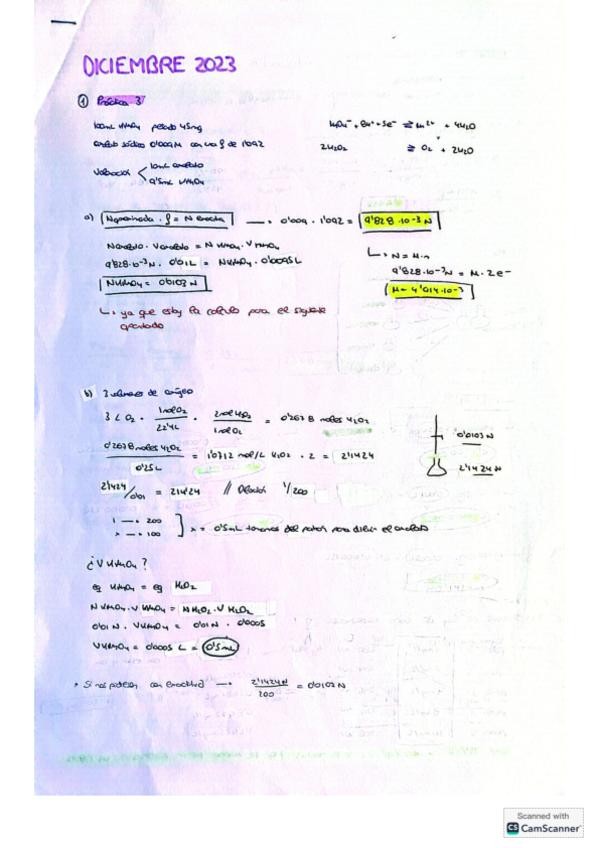 DICIEMBRE 2023
① Práctica 3
100mL KMnO₄ pesado 45mg
oxalato sódico 0'009M con una f de 1'092
Valoración 10mL oxalato
9'5mL KMnO₄
MnO₄⁻ + 8H⁺ + 5e⁻ ⇌ Mn²⁺ + 4H₂O
2H₂O₂ ⇌ O₂ + 2H₂O
a) N aproximada · f = N exacta → 0'009 · 1'092 = 9'828·10⁻³ N
N oxalato · V oxalato = N KMnO₄ · V KMnO₄
9'828·10⁻³N · 0'01L = N KMnO₄ · 0'0095L
N KMnO₄ = 0'0103 N
↳ N = M·n
9'828·10⁻³N = M · 2e⁻
M = 4'914·10⁻³
↳ ya que estoy la calculo para el siguiente
apartado
b) 3 volúmenes de oxígeno
3 L O₂ · 1mol O₂ / 22'4L · 2mol H₂O₂ / 1mol O₂ = 0'2678 moles H₂O₂
0'2678 moles H₂O₂ / 0'25L = 1'0712 mol/L H₂O₂ · 2 = 2'1424
0'0103 N
2'1424 N
2'1424 / 0'01 = 214'24 // Dilución 1/200
1 → 200
x → 100
x = 0'5mL tomamos del patrón para diluir el
¿V KMnO₄?
eq KMnO₄ = eq H₂O₂
N KMnO₄ · V KMnO₄ = N H₂O₂ · V H₂O₂
0'01 N · V KMnO₄ = 0'01 N · 0'0005
V KMnO₄ = 0'0005 L = 0'5mL
* Si nos pidiesen con exactitud → 2'1424N / 200 = 0'0107N
Scanned with
CS CamScanner